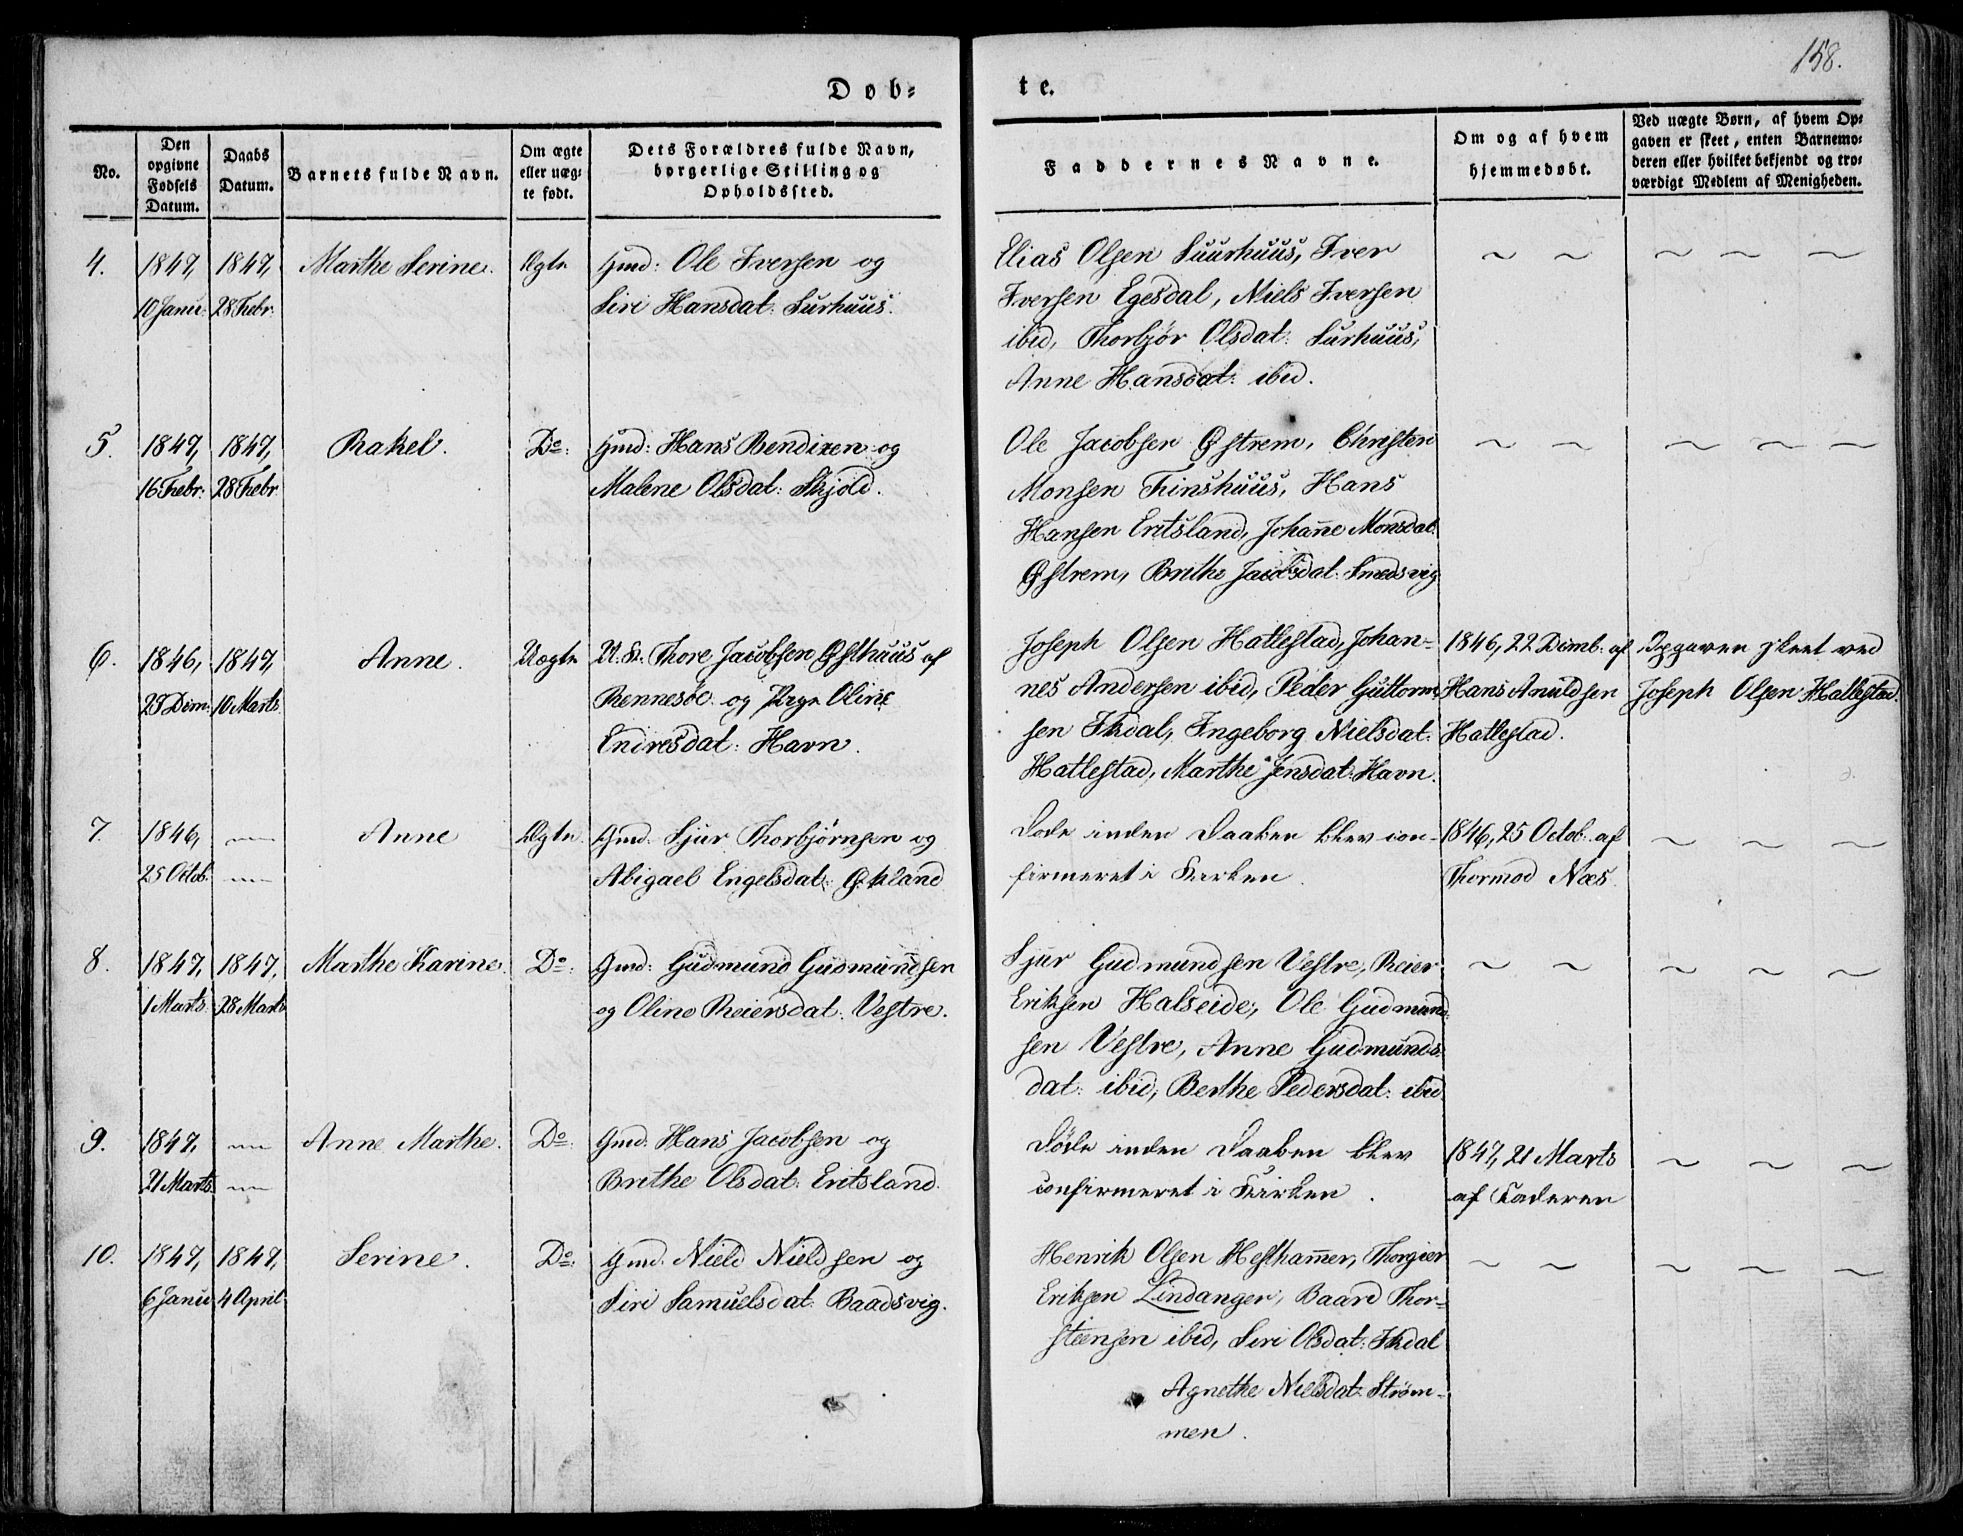 158.
Døb-
te.
No.
Den
opgivne
Fødsels
Datum.
Daabs
Datum.
Barnets fulde Navn.
Om ægte
eller uæg-
te født.
Dets Forældres fulde Navn,
borgerlige Stilling og
Opholdssted.
Faddernes Navne.
Om og af hvem
hjemmedøbt.
Ved uægte Børn, af hvem Op-
gaven er skeet, enten Barnemo-
deren eller hvilket bekjendt og tro-
værdigt Medlem af Menigheden.
4.
1847,
10 Janu:
1847,
28 Febr:
Marthe Serine.
Ægte
Gmd: Ole Iversen og
Siri Hansdat: Surhuus.
Elias Olsen Suurhuus, Iver
Iversen Egesdal, Niels Iversen
ibid, Thorbjør Olsdat: Surhuus,
Anne Hansdat: ibid.
~ ~
~ ~ ~
5.
1847,
16 Febr:
1847,
28 Febr
Rakel.
Do:
Gmd: Hans Bendixen og
Malene Olsdat: Skjold.
Ole Jacobsen Østrem, Christen
Monsen Finshuus, Hans
Hansen Eritsland, Johanne Monsdat:
Østrem, Brithe Jacobsdat: Smedsvig
~ ~
~ ~ ~
6.
1846,
Dcm:
1847,
10 Marts
Anne.
Uægte
Thore Jacobsen Østhuus af
Rennesøe og Pige Oline
Endresdat: Havn.
Joseph Olsen Hatlestad, Johan-
nes Andersen ibid, Peder Guttorm-
sen Ikdal, Ingeborg Nielsdat:
Hatlestad, Marthe Jensdat: Havn.
1846, 22 Dcmb: af
Hans Amuldsen
Hatlestad.
Opgaven skeet ved
Joseph Olsen Hatlestad.
7.
1846,
25 Octob.
Anne
Ægte.
Gmd: Sjur Thorbjørnsen og
Abigael Engelsdat: Økland
Døde inden Daaben blev con-
firmeret i Kirken.
1846, 25 Octob. af
Thormod Næs.
~ ~ ~
8.
1847,
1 Marts
1847,
28 Marts
Marthe Karine.
Do:
Gmd: Gudmund Gudmundsen
og Oline Reiersdat: Vestre.
Sjur Gudmundsen Vestre, Reier
Eriksen Halseide, Ole Gudmund-
sen Vestre, Anne Gudmunds-
dat: ibid, Berthe Pedersdat: ibid
~ ~
~ ~ ~
9.
1847,
21 Marts
Anne Marthe.
Do:
Gmd: Hans Jacobsen og
Brithe Olsdat: Eritsland.
Døde inden Daaben blev
confirmeret i Kirken.
1847, 21 Marts
af Faderen
~ ~ ~
10.
1847,
6 Janu
1847,
4 April
Serine.
Do:
Gmd: Nield Nieldsen og
Siri Samuelsdat: Baadsvig.
Henrik Olsen Hesthammer, Thorgier
Eriksen Lindanger, Baard Thor-
steensen ibid, Siri Olsdat: Ikdal
Agnethe Nielsdat: Strøm-
men.
~ ~
~ ~ ~